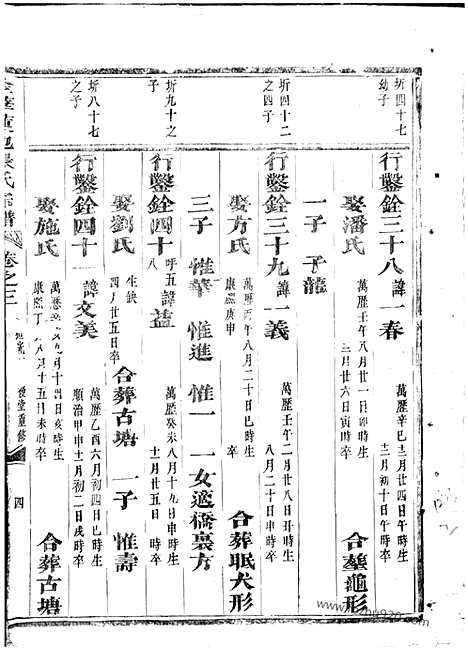 圻四十七
幼子
行鑿銓三十八諱一春
萬歷辛巳三月廿四日午時生
三月初十日午時卒
娶潘氏
萬歷壬午八月廿一日卯時生
三月廿六日寅時卒
合塟龜形
一子 子龍
圻四十二
之四子
行鑿銓三十九諱一義
萬歷壬午二月廿八日丑時生
八月二十日申時卒
娶方氏
萬歷丙午八月二十日巳時生
康熙庚申 卒
合葬眠犬形
三子 惟華 惟進 惟一 一女適橋裏方
圻九十之
子
行鑿銓四十 呼五諱益
八
萬歷癸未八月十九日申時生
十一月廿五日 時卒
娶劉氏
生缺
四月廿五日卒
合葬古塘 一子 惟壽
圻八十七
之子
行鑿銓四十一諱文美
萬歷乙酉六月初四日巳時生
順治甲申十一月初二日戌時卒
娶施氏
萬歷 九月十四日亥時生
康熙丁 八月十五日未時卒
合葬古塘
氏宗譜 卷之三 堂重修 四